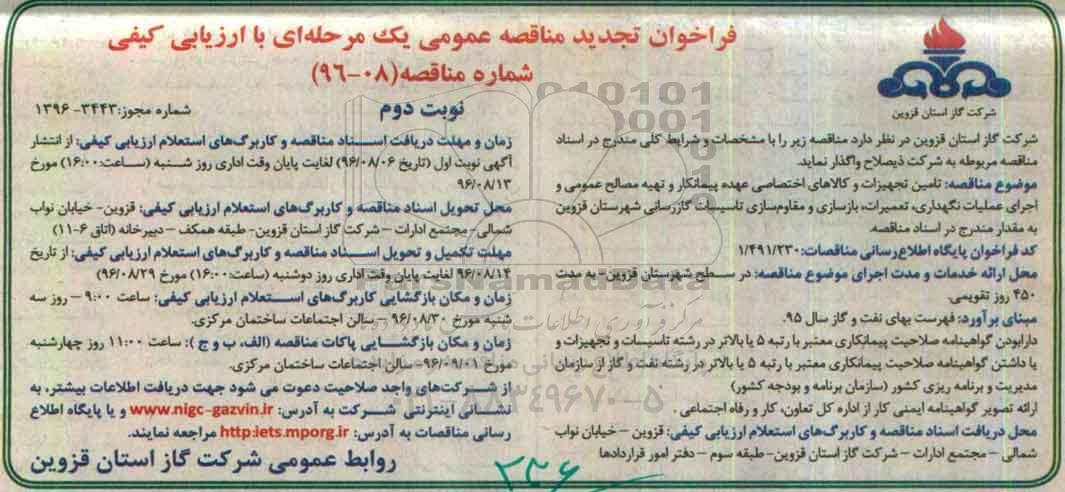 فراخوان تجدید مناقصه عمومی یک مرحله‌ای با ارزیابی کیفی
شماره مناقصه(۰۸-۹۶)
نوبت دوم
شماره مجوز:۳۴۴۳- ۱۳۹۶
شرکت گاز استان قزوین
شرکت گاز استان قزوین در نظر دارد مناقصه زیر را با مشخصات و شرایط کلی مندرج در اسناد
مناقصه مربوطه به شرکت ذیصلاح واگذار نماید.
موضوع مناقصه: تامین تجهیزات و کالاهای اختصاصی عهده پیمانکار و تهیه مصالح عمومی و
اجرای عملیات نگهداری، تعمیرات، بازسازی و مقاوم‌سازی تاسیسات گازرسانی شهرستان قزوین
به مقدار مندرج در اسناد مناقصه.
کد فراخوان پایگاه اطلاع‌رسانی مناقصات:۱/۴۹۱/۲۳۰
محل ارائه خدمات و مدت اجرای موضوع مناقصه: در سطح شهرستان قزوین- به مدت
۴۵۰ روز تقویمی.
مبنای برآورد: فهرست بهای نفت و گاز سال ۹۵.
دارابودن گواهینامه صلاحیت پیمانکاری معتبر با رتبه ۵ یا بالاتر در رشته تاسیسات و تجهیزات و
یا داشتن گواهینامه صلاحیت پیمانکاری معتبر با رتبه ۵ یا بالاتر در رشته نفت و گاز از سازمان
مدیریت و برنامه ریزی کشور (سازمان برنامه و بودجه کشور)
ارائه تصویر گواهینامه ایمنی کار از اداره کل تعاون، کار و رفاه اجتماعی .
محل دریافت اسناد مناقصه و کاربرگ‌های استعلام ارزیابی کیفی: قزوین – خیابان نواب
شمالی – مجتمع ادارات – شرکت گاز استان قزوین- طبقه سوم – دفتر امور قراردادها
زمان و مهلت دریافت اسناد مناقصه و کاربرگ‌های استعلام ارزیابی کیفی: از انتشار
آگهی نوبت اول (تاریخ ۹۶/۰۸/۰۶) لغایت پایان وقت اداری روز شنبه (ساعت:۱۶:۰۰) مورخ
۹۶/۰۸/۱۳
محل تحویل اسناد مناقصه و کاربرگ‌های استعلام ارزیابی کیفی: قزوین- خیابان نواب
شمالی- مجتمع ادارات – شرکت گاز استان قزوین- طبقه همکف – دبیرخانه (اتاق ۶-۱۱)
مهلت تکمیل و تحویل اسناد مناقصه و کاربرگ‌های استعلام ارزیابی کیفی: از تاریخ
۹۶/۰۸/۱۴ لغایت پایان وقت اداری روز دوشنبه (ساعت:۱۶:۰۰) مورخ ۹۶/۰۸/۲۹
زمان و مکان بازگشایی کاربرگ‌های استعلام ارزیابی کیفی: ساعت ۹:۰۰ – روز سه
شنبه مورخ ۹۶/۰۸/۳۰ – سالن اجتماعات ساختمان مرکزی.
زمان و مکان بازگشایی پاکات مناقصه (الف، ب و ج ): ساعت ۱۱:۰۰ روز چهارشنبه
مورخ ۹۶/۰۹/۰۱- سالن اجتماعات ساختمان مرکزی.
از شرکت‌های واجد صلاحیت دعوت می شود جهت دریافت اطلاعات بیشتر، به
نشانی اینترنتی شرکت به آدرس: www.nigc-gazvin.ir و یا پایگاه اطلاع
رسانی مناقصات به آدرس: http:iets.mporg.ir مراجعه نمایند.
روابط عمومی شرکت گاز استان قزوین
ParsNamadData
۰۲۱-۸۸۳۴۹۶۷۰-۵